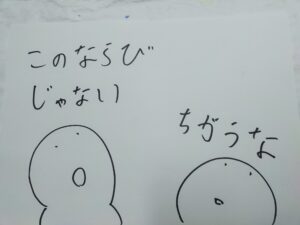 このならび
じゃない
ちがうな